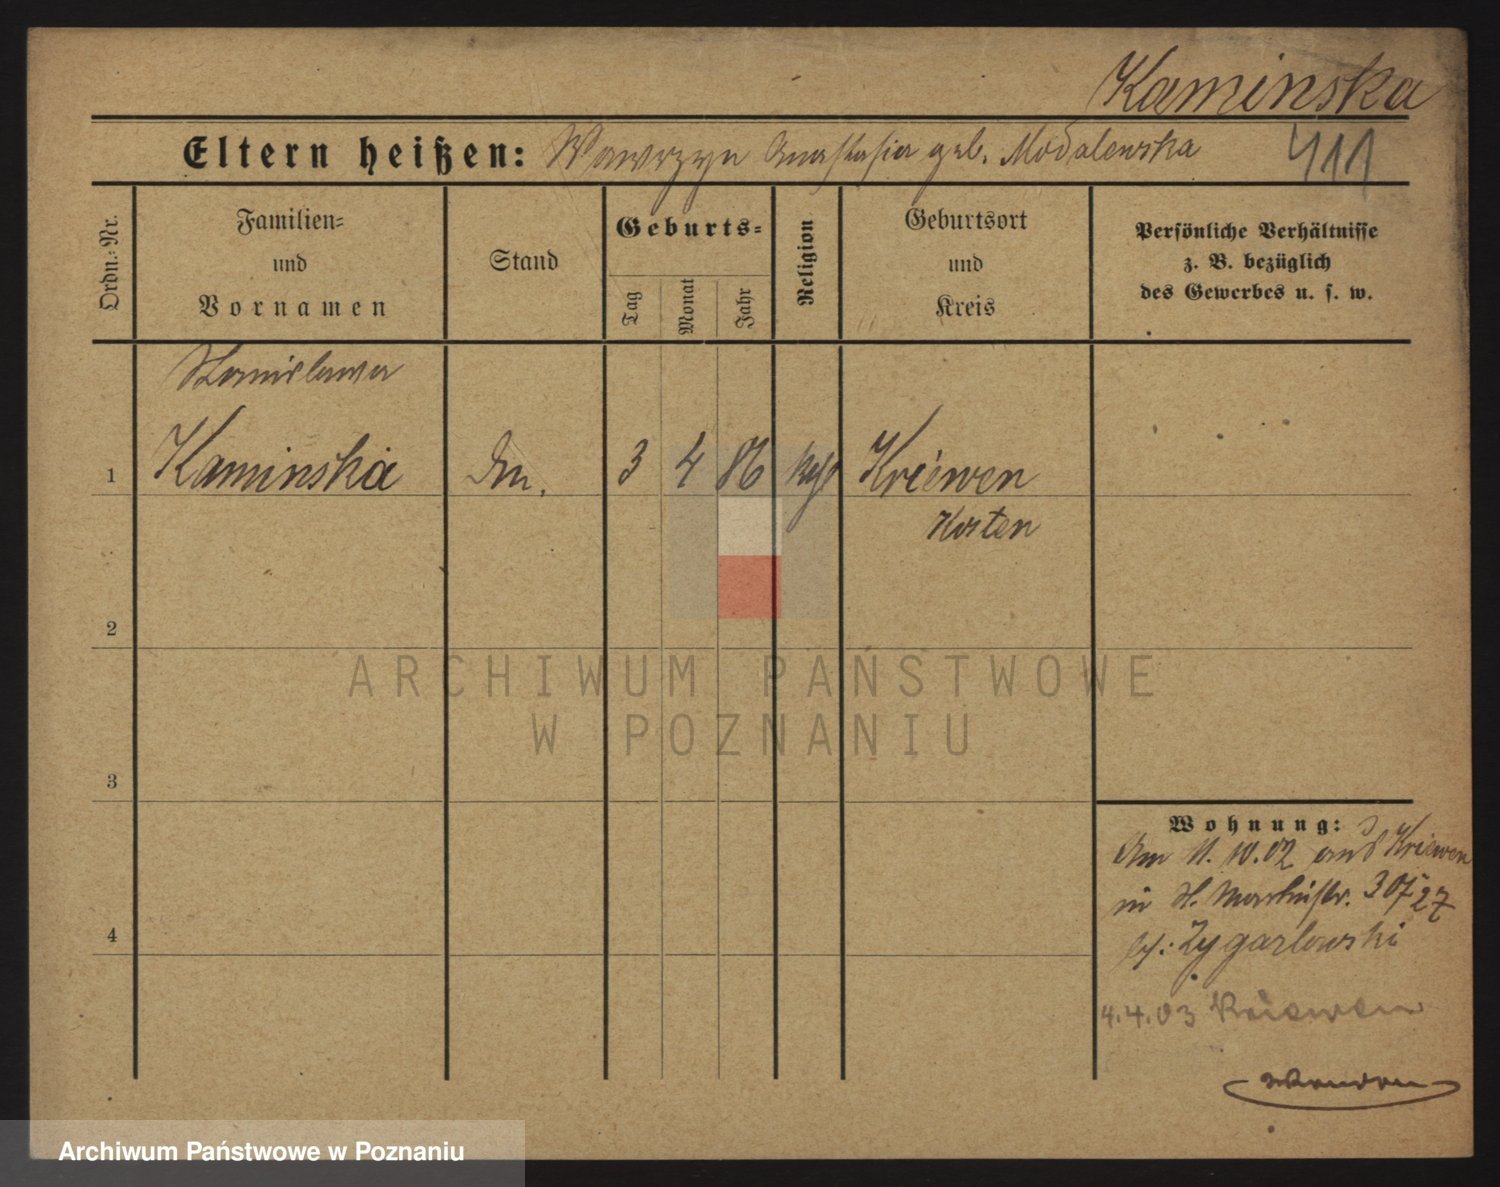 Kaminska
Eltern heißen: Wawrzyn Anastasia geb. Modalewska
411
Ordn.-Nr.
Familien-
und
Vornamen
Stand
Geburts-
Tag
Monat
Jahr
Religion
Geburtsort
und
Kreis
Persönliche Verhältnisse
z. B. bezüglich
des Gewerbes u. s. w.
Stanislawa
1 Kaminska 3 4 86 Kriewen
Kosten
2
3
4
Wohnung:
Am 11.10.02 aus Kriewen
in St. Martinstr. 27
bei: Zygarlowski
4.4.03 Kriewen
ARCHIWUM PAŃSTWOWE
W POZNANIU
Archiwum Państwowe w Poznaniu